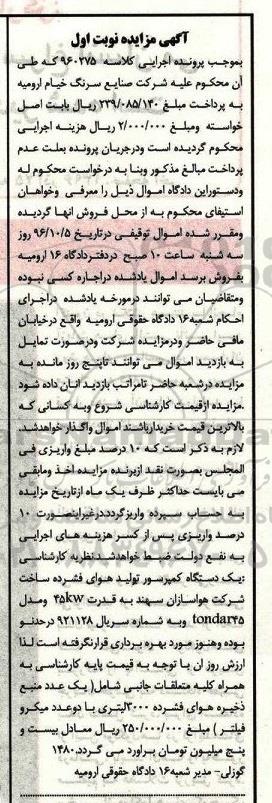 آگهی مزایده نوبت اول
بموجب پرونده اجرایی کلاسه ۹۶۰۲۷۵ که طی
آن محکوم علیه شرکت صنایع سرنگ خیام ارومیه
به پرداخت مبلغ ۲۳۹/۰۸۵/۱۴۰ ریال بابت اصل
خواسته ومبلغ ۲/۰۰۰/۰۰۰ ریال هزینه اجرایی
محکوم گردیده است ودرجریان پرونده بعلت عدم
پرداخت مبالغ مذکور وبنا به درخواست محکوم له
ودستوراین دادگاه اموال ذیل را معرفی وخواهان
استیفای محکوم به از محل فروش آنها گردیده
ومقرر شده اموال توقیفی درتاریخ ۹۶/۱۰/۵ روز
سه شنبه ساعت ۱۰ صبح دردفتردادگاه ۱۶ ارومیه
بفروش برسد اموال یادشده دراجاره کسی نبوده
ومتقاضیان می توانند درمورخه یادشده دراجرای
احکام شعبه۱۶ دادگاه حقوقی ارومیه واقع درخیابان
مافی حاضر ودرمزایده شرکت ودرصورت تمایل
به بازدید اموال می توانند تاپنج روز مانده به
مزایده درشعبه حاضر تامراتب بازدید آنان داده شود
.مزایده ازقیمت کارشناسی شروع وبه کسانی که
بالاترین قیمت خریدارباشند اموال واگذار خواهدشد.
لازم به ذکر است که ۱۰ درصد مبلغ واریزی فی
المجلس بصورت نقد ازبرنده مزایده اخذ ومابقی
می بایست حداکثر ظرف یک ماه ازتاریخ مزایده
به حساب سپرده واریزگردد.درغیراینصورت ۱۰
درصد واریزی پس از کسر هزینه های اجرایی
به نفع دولت ضبط خواهدشد نظریه کارشناسی
:یک دستگاه کمپرسور تولید هوای فشرده ساخت
شرکت هواسازان سهند به قدرت ۴۵kw ومدل
tondar۴۵ وبه شماره سریال ۹۲۱۱۲۸ درحدنو
بوده وهنوز مورد بهره برداری قرارنگرفته است لذا
ارزش روز آن با توجه به قیمت پایه کارشناسی به
همراه کلیه متعلقات جانبی شامل( یک عدد منبع
ذخیره هوای فشرده ۳۰۰۰لیتری با دوعدد میکرو
فیلتر ) مبلغ ۲۵۰/۰۰۰/۰۰۰ ریال معادل بیست و
پنج میلیون تومان برآورد می گردد.۱۴۸۰
گوزلی- مدیر شعبه۱۶ دادگاه حقوقی ارومیه